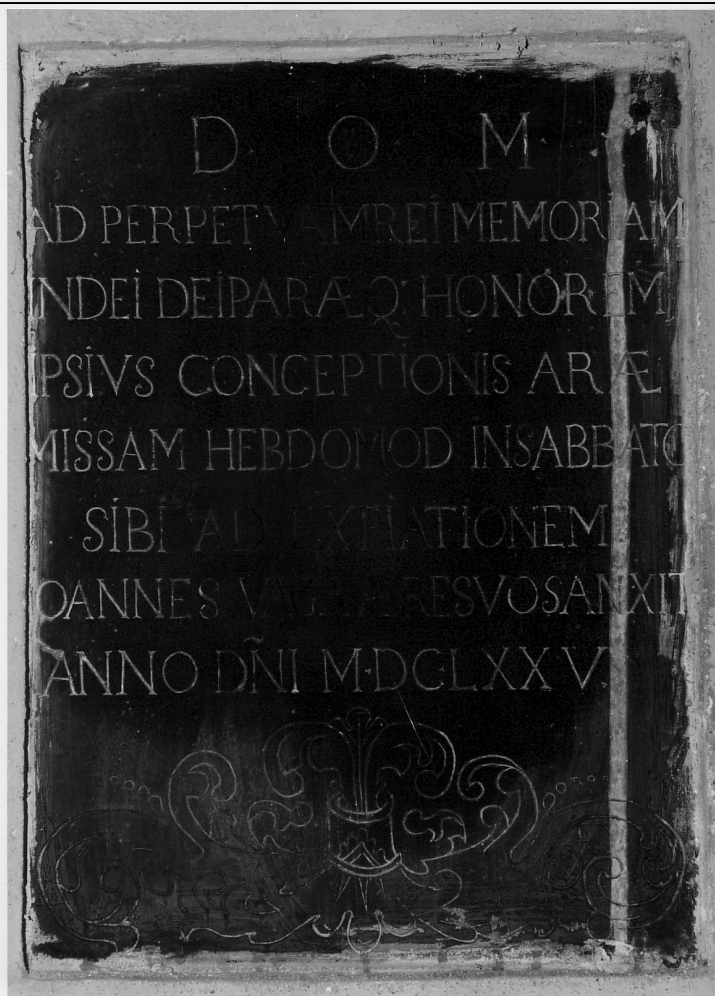 D O M
AD PERPETVAM REI MEMORIAM
IN DEI DEIPARÆ Q HONOREM
IPSIVS CONCEPTIONIS ARÆ
MISSAM HEBDOMOD IN SABBATO
SIBI AD EXPIATIONEM
IOANNES ÆRE SVO SANXIT
ANNO DÑI M·DC·LXXV